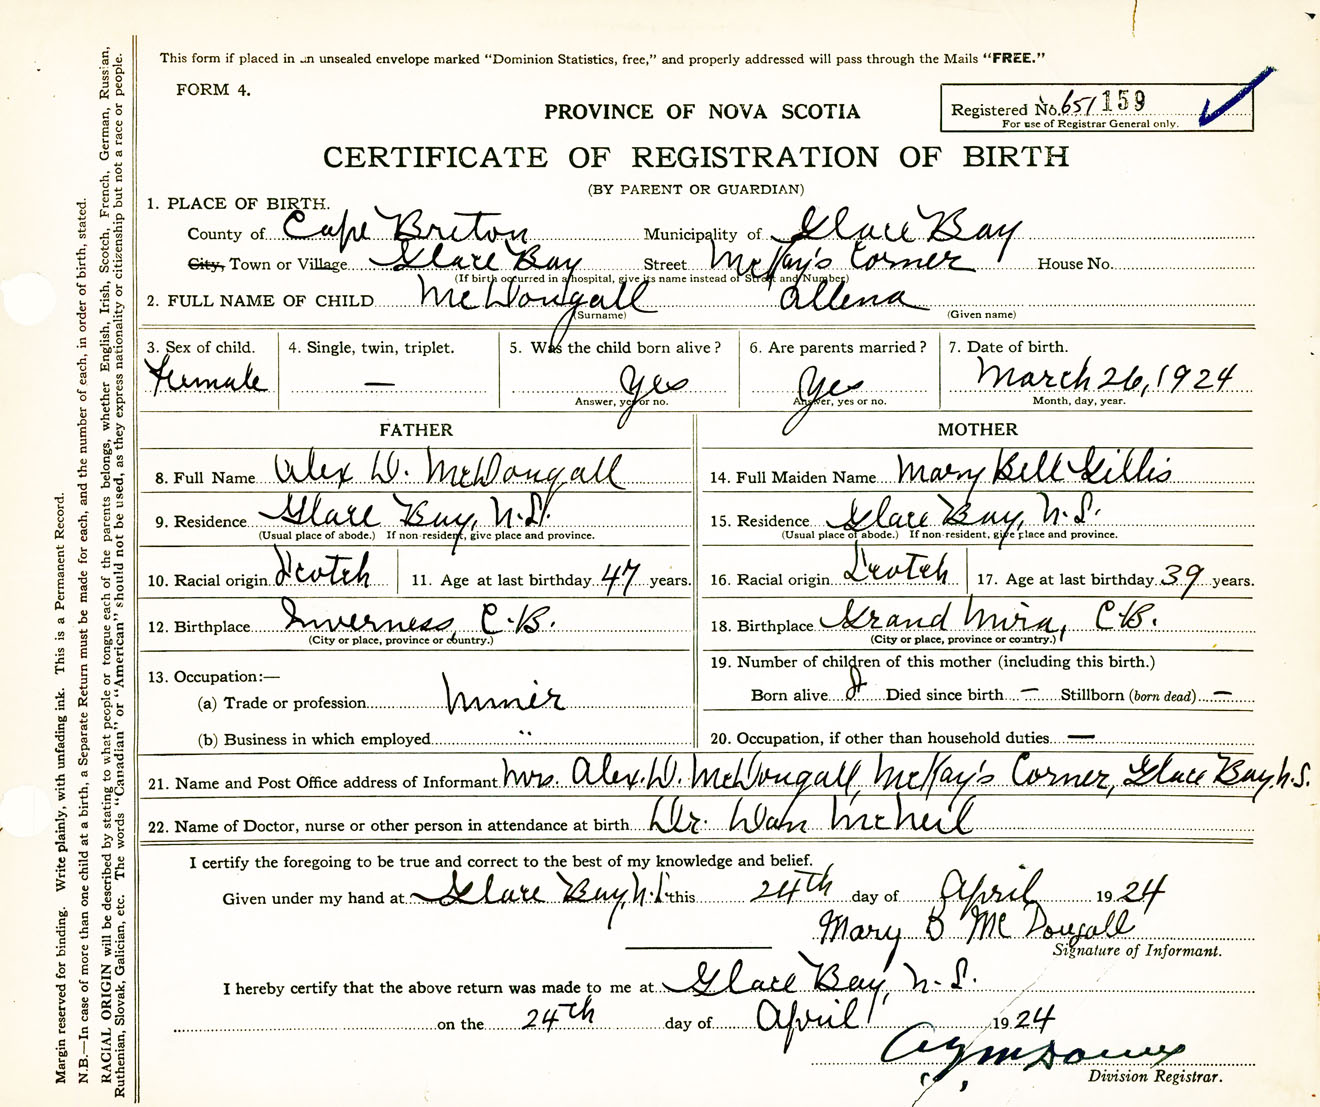 This form if placed in an unsealed envelope marked "Dominion Statistics, free," and properly addressed will pass through the Mails "FREE."
FORM 4.
PROVINCE OF NOVA SCOTIA
Registered No. 651 159
For use of Registrar General only.
CERTIFICATE OF REGISTRATION OF BIRTH
(BY PARENT OR GUARDIAN)
1. PLACE OF BIRTH.
County of Cape Breton Municipality of Glace Bay
City, Town or Village Glace Bay Street McKay's Corner House No.
(If birth occurred in a hospital, give its name instead of Street and Number)
2. FULL NAME OF CHILD McDougall Allena
(Surname) (Given name)
3. Sex of child. 4. Single, twin, triplet. 5. Was the child born alive? 6. Are parents married? 7. Date of birth.
Female — Yes Yes March 26, 1924
Answer, yes or no. Answer, yes or no. Month, day, year.
FATHER MOTHER
8. Full Name Alex D. McDougall 14. Full Maiden Name Mary Bell Gillis
9. Residence Glace Bay, N.S. 15. Residence Glace Bay, N.S.
(Usual place of abode.) If non-resident, give place and province. (Usual place of abode.) If non-resident, give place and province.
10. Racial origin Scotch 11. Age at last birthday 47 years. 16. Racial origin Scotch 17. Age at last birthday 39 years.
12. Birthplace Inverness, C.B. 18. Birthplace Grand Mira, C.B.
(City or place, province or country.) (City or place, province or country.)
13. Occupation:— 19. Number of children of this mother (including this birth.)
(a) Trade or profession Miner Born alive Died since birth — Stillborn (born dead) —
(b) Business in which employed " 20. Occupation, if other than household duties —
21. Name and Post Office address of Informant Mrs. Alex. D. McDougall, McKay's Corner, Glace Bay, N.S.
22. Name of Doctor, nurse or other person in attendance at birth Dr. Dan McNeil
I certify the foregoing to be true and correct to the best of my knowledge and belief.
Given under my hand at Glace Bay, N.S. this 24th day of April 1924
Mary B McDougall
Signature of Informant.
I hereby certify that the above return was made to me at Glace Bay, N.S.
on the 24th day of April 1924
Division Registrar.
Margin reserved for binding. Write plainly, with unfading ink. This is a Permanent Record.
N.B.—In case of more than one child at a birth, a Separate Return must be made for each, and the number of each, in order of birth, stated.
RACIAL ORIGIN will be described by stating to what people or tongue each of the parents belongs, whether English, Irish, Scotch, French, German, Russian,
Ruthenian, Slovak, Galician, etc. The words "Canadian" or "American" should not be used, as they express nationality or citizenship but not a race or people.